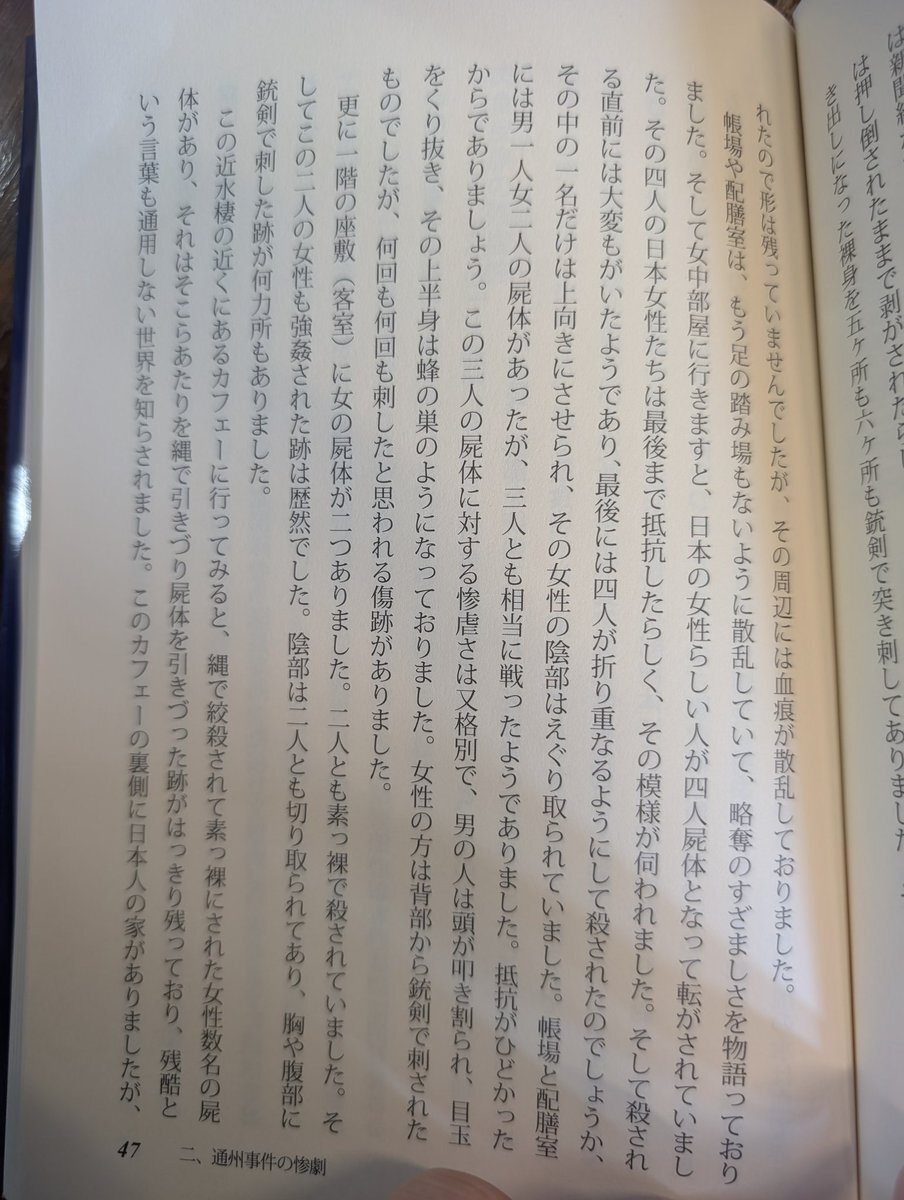 は押し倒されたままで剥がされたらし
き出しになった裸身を五ヶ所も六ヶ所も銃剣で突き刺してありました
れたので形は残っていませんでしたが、その周辺には血痕が散乱しておりました。
帳場や配膳室は、もう足の踏み場もないように散乱していて、略奪のすざましさを物語っており
ました。そして女中部屋に行きますと、日本の女性らしい人が四人屍体となって転がされていまし
た。その四人の日本女性たちは最後まで抵抗したらしく、その模様が伺われました。そして殺され
る直前には大変もがいたようであり、最後には四人が折り重なるようにして殺されたのでしょうか、
その中の一名だけは上向きにさせられ、その女性の陰部はえぐり取られていました。帳場と配膳室
には男一人女二人の屍体があったが、三人とも相当に戦ったようでありました。抵抗がひどかった
からでありましょう。この三人の屍体に対する惨虐さは又格別で、男の人は頭が叩き割られ、目玉
をくり抜き、その上半身は蜂の巣のようになっておりました。女性の方は背部から銃剣で刺された
ものでしたが、何回も何回も刺したと思われる傷跡がありました。
更に一階の座敷（客室）に女の屍体が二つありました。二人とも素っ裸で殺されていました。そ
してこの二人の女性も強姦された跡は歴然でした。陰部は二人とも切り取られてあり、胸や腹部に
銃剣で刺した跡が何力所もありました。
この近水棲の近くにあるカフェーに行ってみると、縄で絞殺されて素っ裸にされた女性数名の屍
体があり、それはそこらあたりを縄で引きづり屍体を引きづった跡がはっきり残っており、残酷と
いう言葉も通用しない世界を知らされました。このカフェーの裏側に日本人の家がありましたが、
47 二、通州事件の惨劇